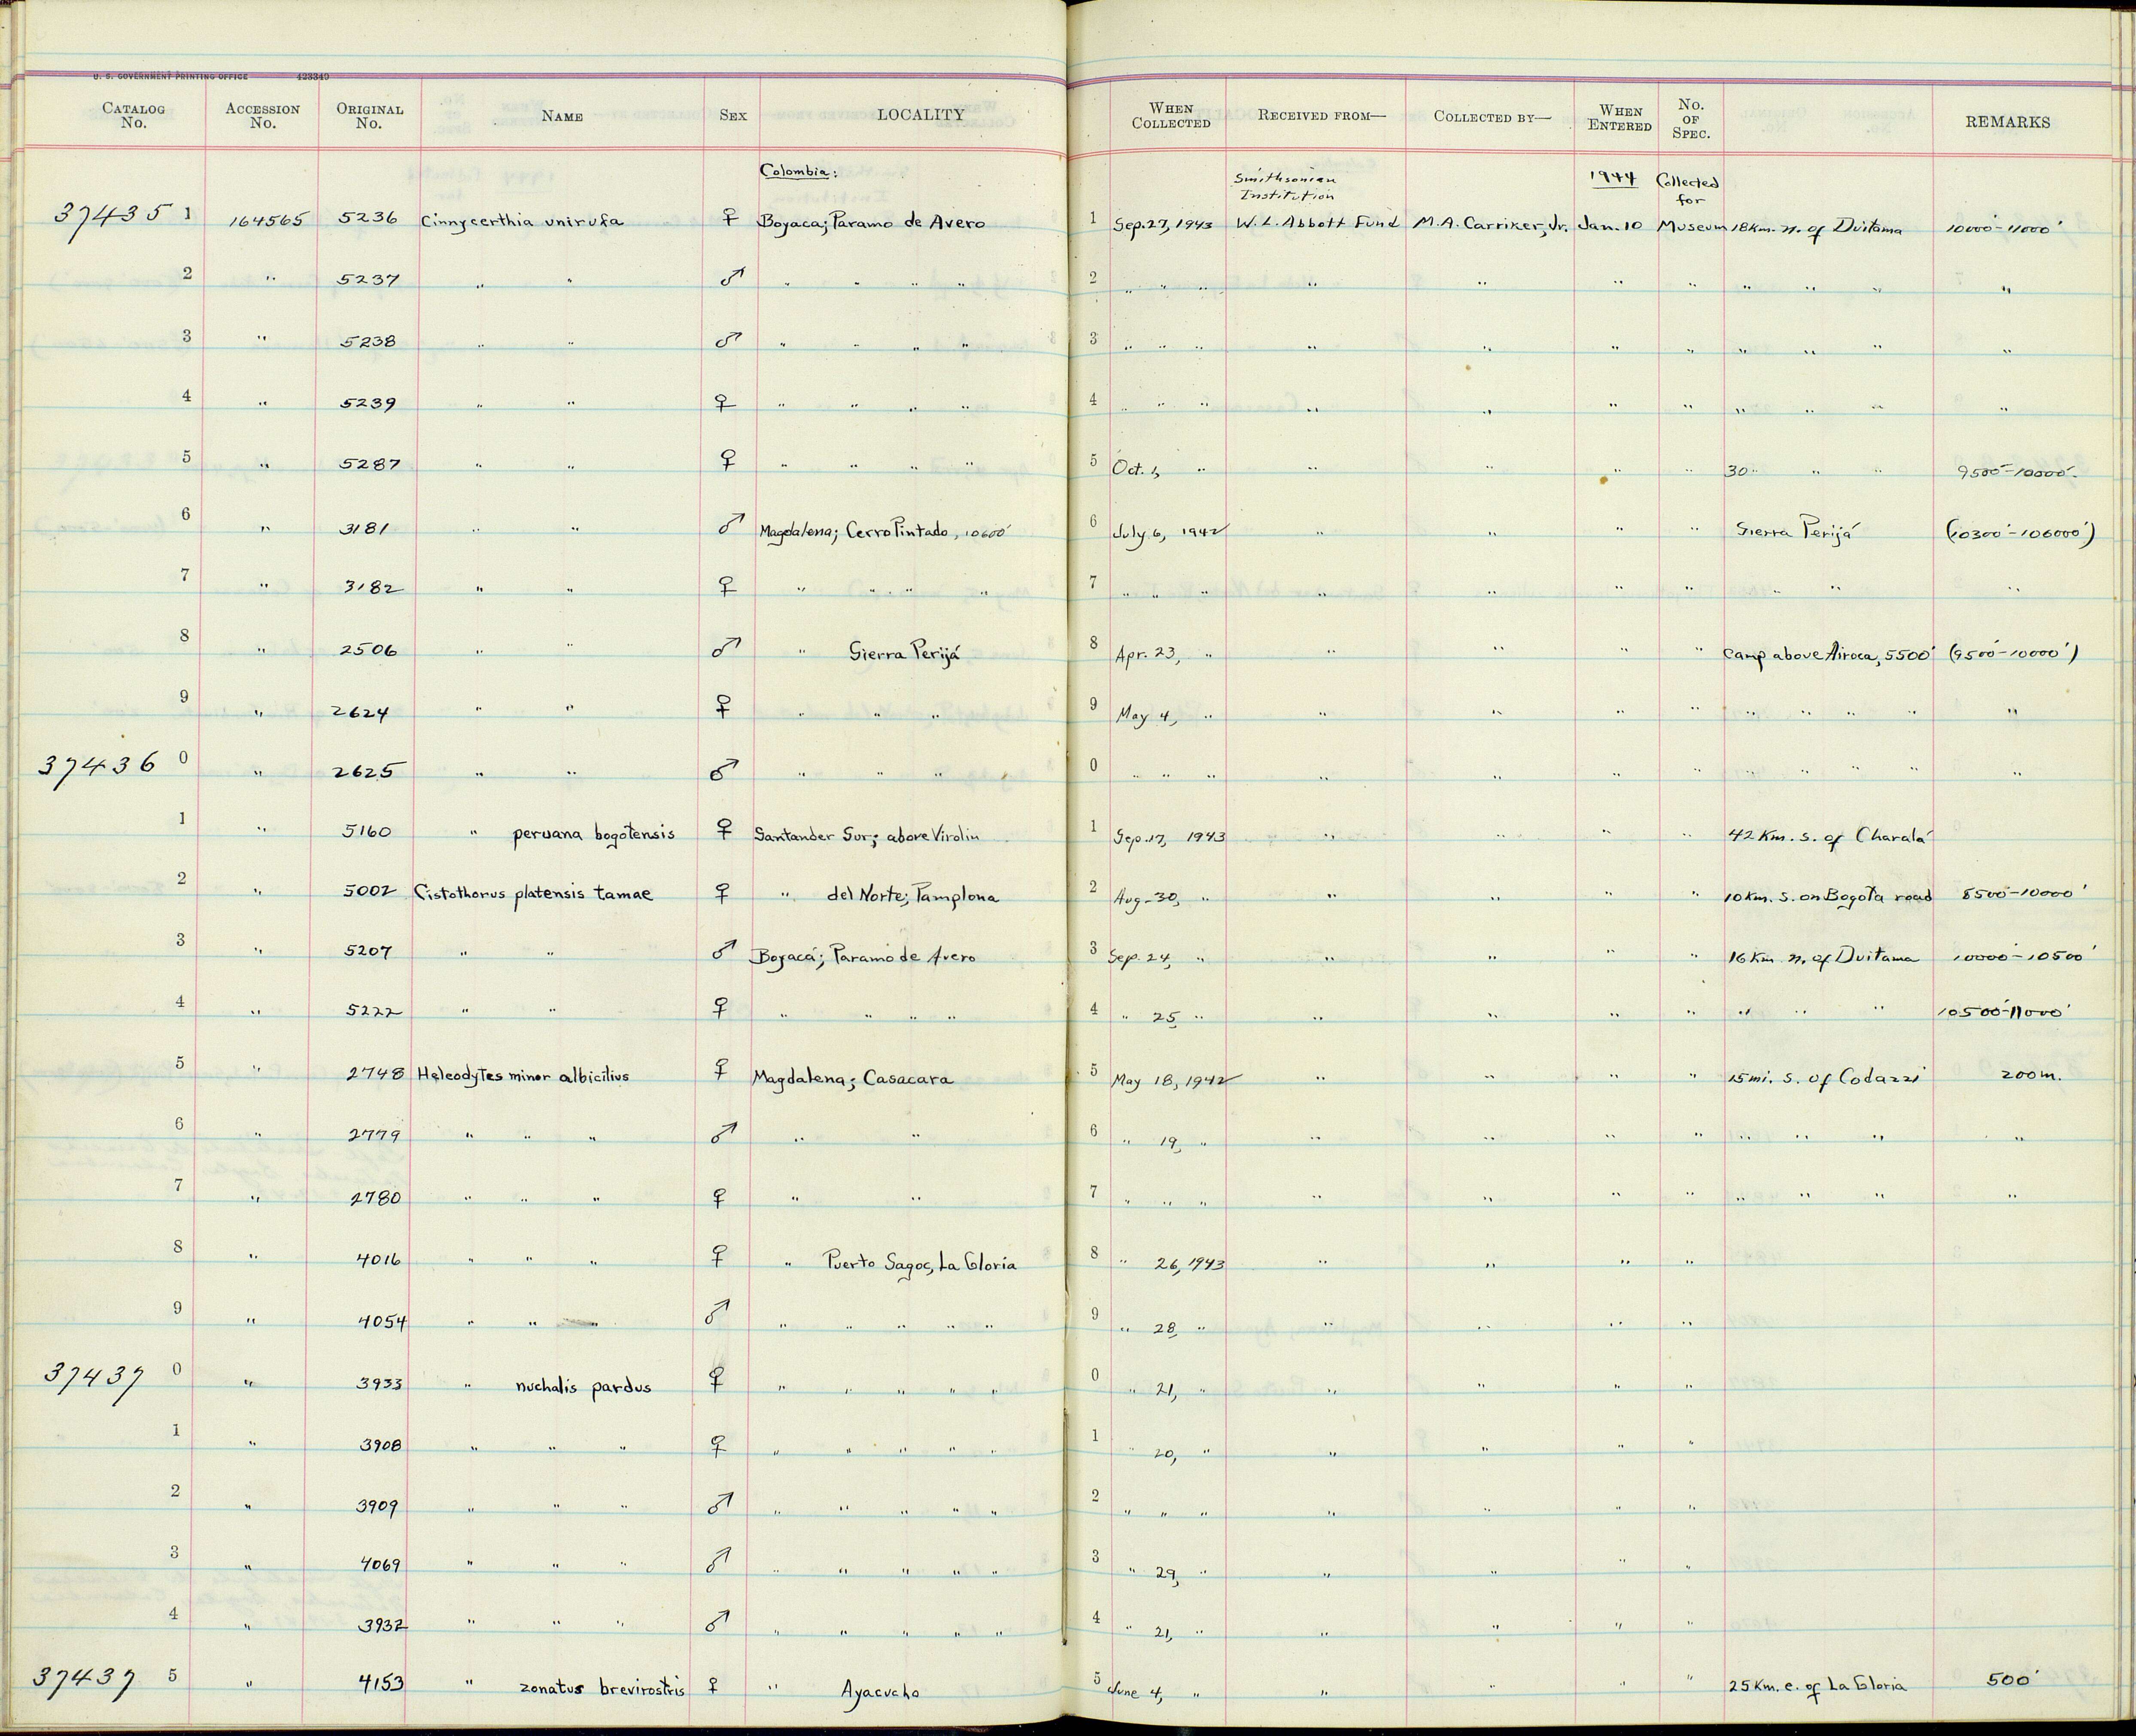 U. S. GOVERNMENT PRINTING OFFICE 423349
CATALOG No. ACCESSION No. ORIGINAL No. NAME SEX LOCALITY WHEN COLLECTED RECEIVED FROM— COLLECTED BY— WHEN ENTERED No. OF SPEC. REMARKS
Colombia: Smithsonian Institution 1944 Collected for
37435 1 164565 5236 Cinnycerthia unirufa ♀ Boyaca; Paramo de Avero 1 Sep. 27, 1943 W. L. Abbott Fund M. A. Carriker, Jr. Jan. 10 Museum 18 Km. n. of Duitama 10000'-11000'
2 " 5237 " " ♂ " " " " 2 " " " " " " " " " " "
3 " 5238 " " ♂ " " " " 3 " " " " " " " " " " "
4 " 5239 " " ♀ " " " " 4 " " " " " " " " " " "
5 " 5287 " " ♀ " " " " 5 Oct. 1, " " " " " 30 " " " 9500'-10000'.
6 " 3181 " " ♂ Magdalena; Cerro Pintado, 10600' 6 July 6, 1942 " " " " Sierra Perijá (10300'-106000')
7 " 3182 " " ♀ " " " " 7 " " " " " " " " " "
8 " 2506 " " ♂ " Sierra Perijá 8 Apr. 23, " " " " " Camp above Airoca, 5500' (9500'-10000')
9 " 2624 " " ♀ " " " 9 May 4, " " " " " " " " " "
37436 0 " 2625 " " ♂ " " " 0 " " " " " " " " " " " "
1 " 5160 " peruana bogotensis ♀ Santander Sur; above Virolin 1 Sep. 17, 1943 " " " " 42 Km. s. of Charalá
2 " 5002 Cistothorus platensis tamae ♀ " del Norte; Pamplona 2 Aug. 30, " " " " " 10 Km. s. on Bogota road 8500'-10000'
3 " 5207 " " ♂ Boyacá; Paramo de Avero 3 Sep. 24, " " " " " 16 Km n. of Duitama 10000'-10500'
4 " 5222 " " ♀ " " " " 4 " 25, " " " " " " " " 10500'-11000'
5 " 2748 Heleodytes minor albicilius ♀ Magdalena; Casacara 5 May 18, 1942 " " " " 15 mi. s. of Codazzi 200m.
6 " 2779 " " " ♂ " " 6 " 19, " " " " " " " " "
7 " 2780 " " " ♀ " " 7 " " " " " " " " " " "
8 " 4016 " " " ♀ " Puerto Sagoc, La Gloria 8 " 26, 1943 " " " "
9 " 4054 " " " ♂ " " " " " 9 " 28, " " " " "
37437 0 " 3933 " nuchalis pardus ♀ " " " " " 0 " 21, " " " " "
1 " 3908 " " " ♀ " " " " " 1 " 20, " " " " "
2 " 3909 " " " ♂ " " " " " 2 " " " " " " "
3 " 4069 " " " ♂ " " " " " 3 " 29, " " " " "
4 " 3932 " " " ♂ " " " " " 4 " 21, " " " " "
37437 5 " 4153 " zonatus brevirostris ♀ " Ayacucho 5 June 4, " " " " " 25 Km. e. of La Gloria 500'